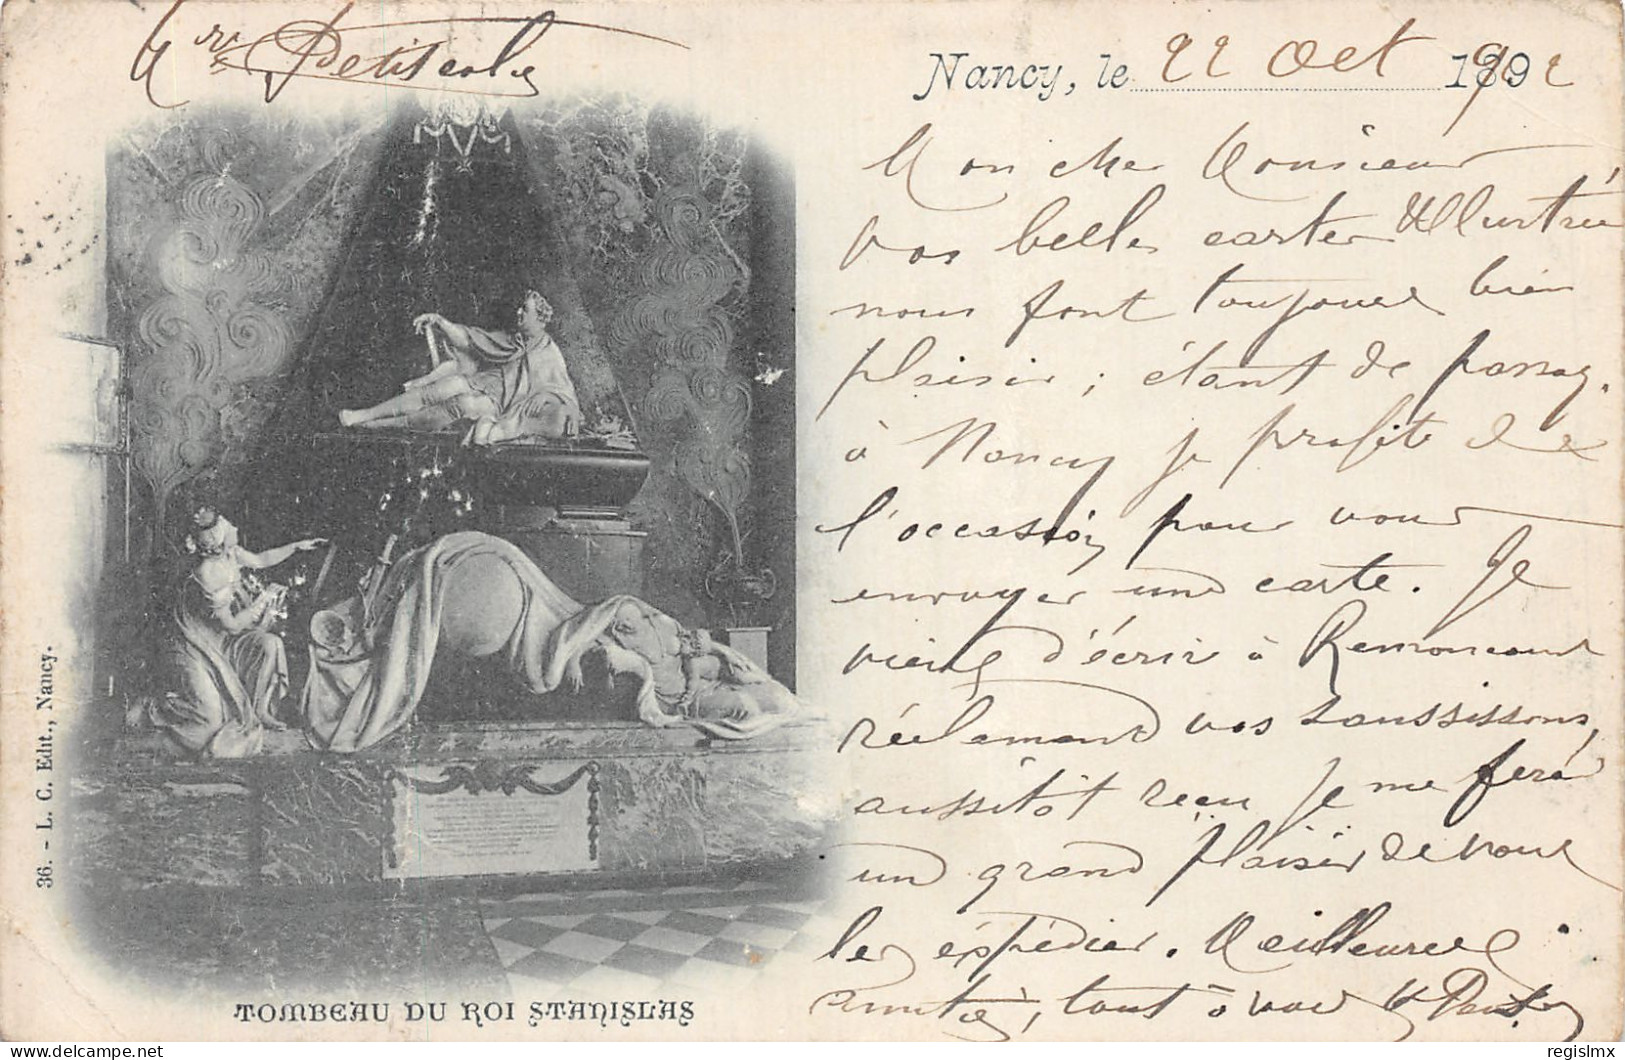 Petitcolin
Nancy, le 22 Oct 1892
Mon cher Monsieur
vos belles cartes Illustrées
nous font toujours bien
plaisir ; étant de passag.
à Nancy je profite de
l'occasion pour vous
envoyer une carte. Je
viens d'écrir à Remoncourt
réclamant vos saussissons,
aussitôt reçu je me feré
un grand plaisir de vous
les éxpédier. Meilleures
amitiés, tout à vous
36. - L. C. Edit., Nancy.
TOMBEAU DU ROI STANISLAS
regislmx